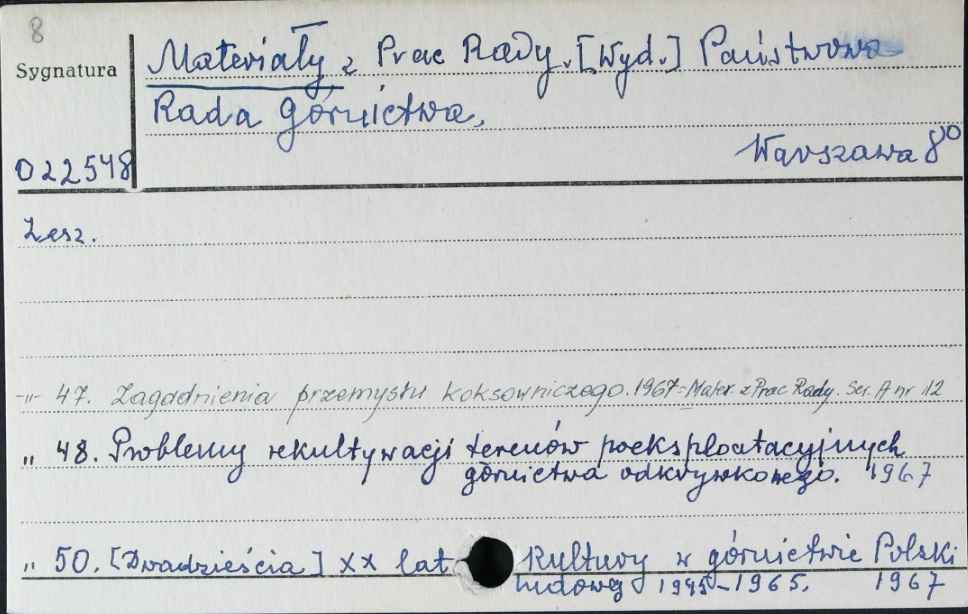 8
Materiały z Prac Rady. [Wyd.] Państwowa
Sygnatura
Rada Górnictwa.
Warszawa 8⁰
022548
Zesz.
-"- 47. Zagadnienia przemysłu koksowniczego. 1967 = Mater. z Prac Rady. Ser. A nr 12
" 48. Problemy rekultywacji terenów poeksploatacyjnych
górnictwa odkrywkowego. 1967
" 50. [Dwadzieścia] XX lat Kultury w górnictwie Polski
Ludowej 1945-1965. 1967